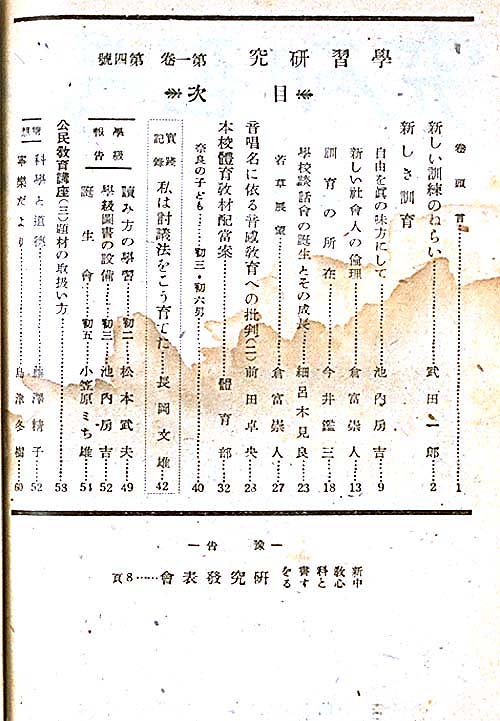 學習研究 第一卷 第四號
目次
卷頭言……1
新しい訓練のねらい……武田一郎……2
新しき訓育
自由を眞の味方にして……池內房吉……9
新しい社會人の倫理……倉富崇人……13
訓育の所在……今井鑑三……18
學校談話會の誕生とその成長……細呂木見良……23
若草展望……倉富崇人……27
音唱名に依る音感敎育への批判(二)……前田卓央……28
本校體育敎材配當案……體育部……32
奈良の子ども……初三・初六男……40
實踐記錄 私は討議法をこう育てた……長岡文雄……42
學級報告
讀み方の學習……初二……松本武夫……49
學級圖書の設備……初三……池內房吉……52
誕生會……初五……小笠原ミち雄……54
公民敎育講座(三)題材の取扱い方……58
科學と道德……澤精子……52
寧樂だより……島津冬樹……60
―豫告―
新敎科書を中心とする硏究發表會……8頁